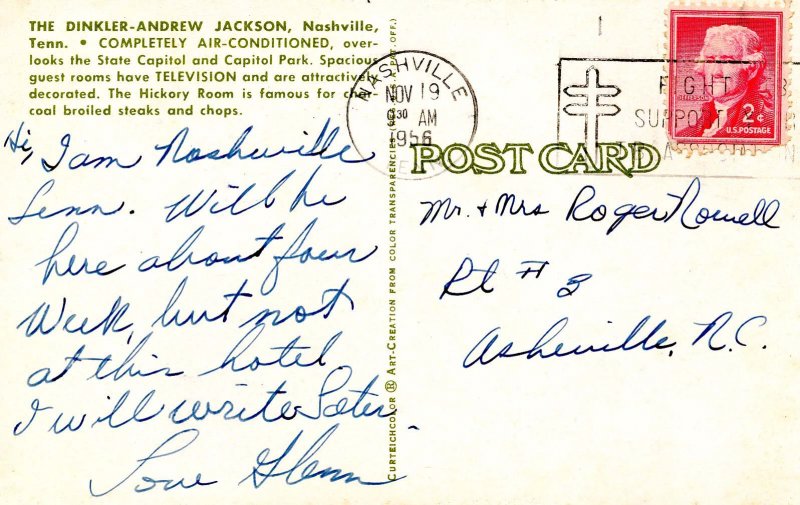 THE DINKLER-ANDREW JACKSON, Nashville,
Tenn. • COMPLETELY AIR-CONDITIONED, over-
looks the State Capitol and Capitol Park. Spacious
guest rooms have TELEVISION and are attractively
decorated. The Hickory Room is famous for char-
coal broiled steaks and chops.
Hi, I am Nashville
Tenn. Will be
here about four
Week, but not
at this hotel
I will write Later
Love Glenn
CURTEICHCOLOR ® ART-CREATION FROM COLOR TRANSPARENCIES
NASHVILLE
NOV 19
30 AM
1956
FIGHT
SUPPORT
2¢
U.S. POSTAGE
POST CARD
Mr. + Mrs Roger Nowell
Rt # 3
Asheville, N.C.